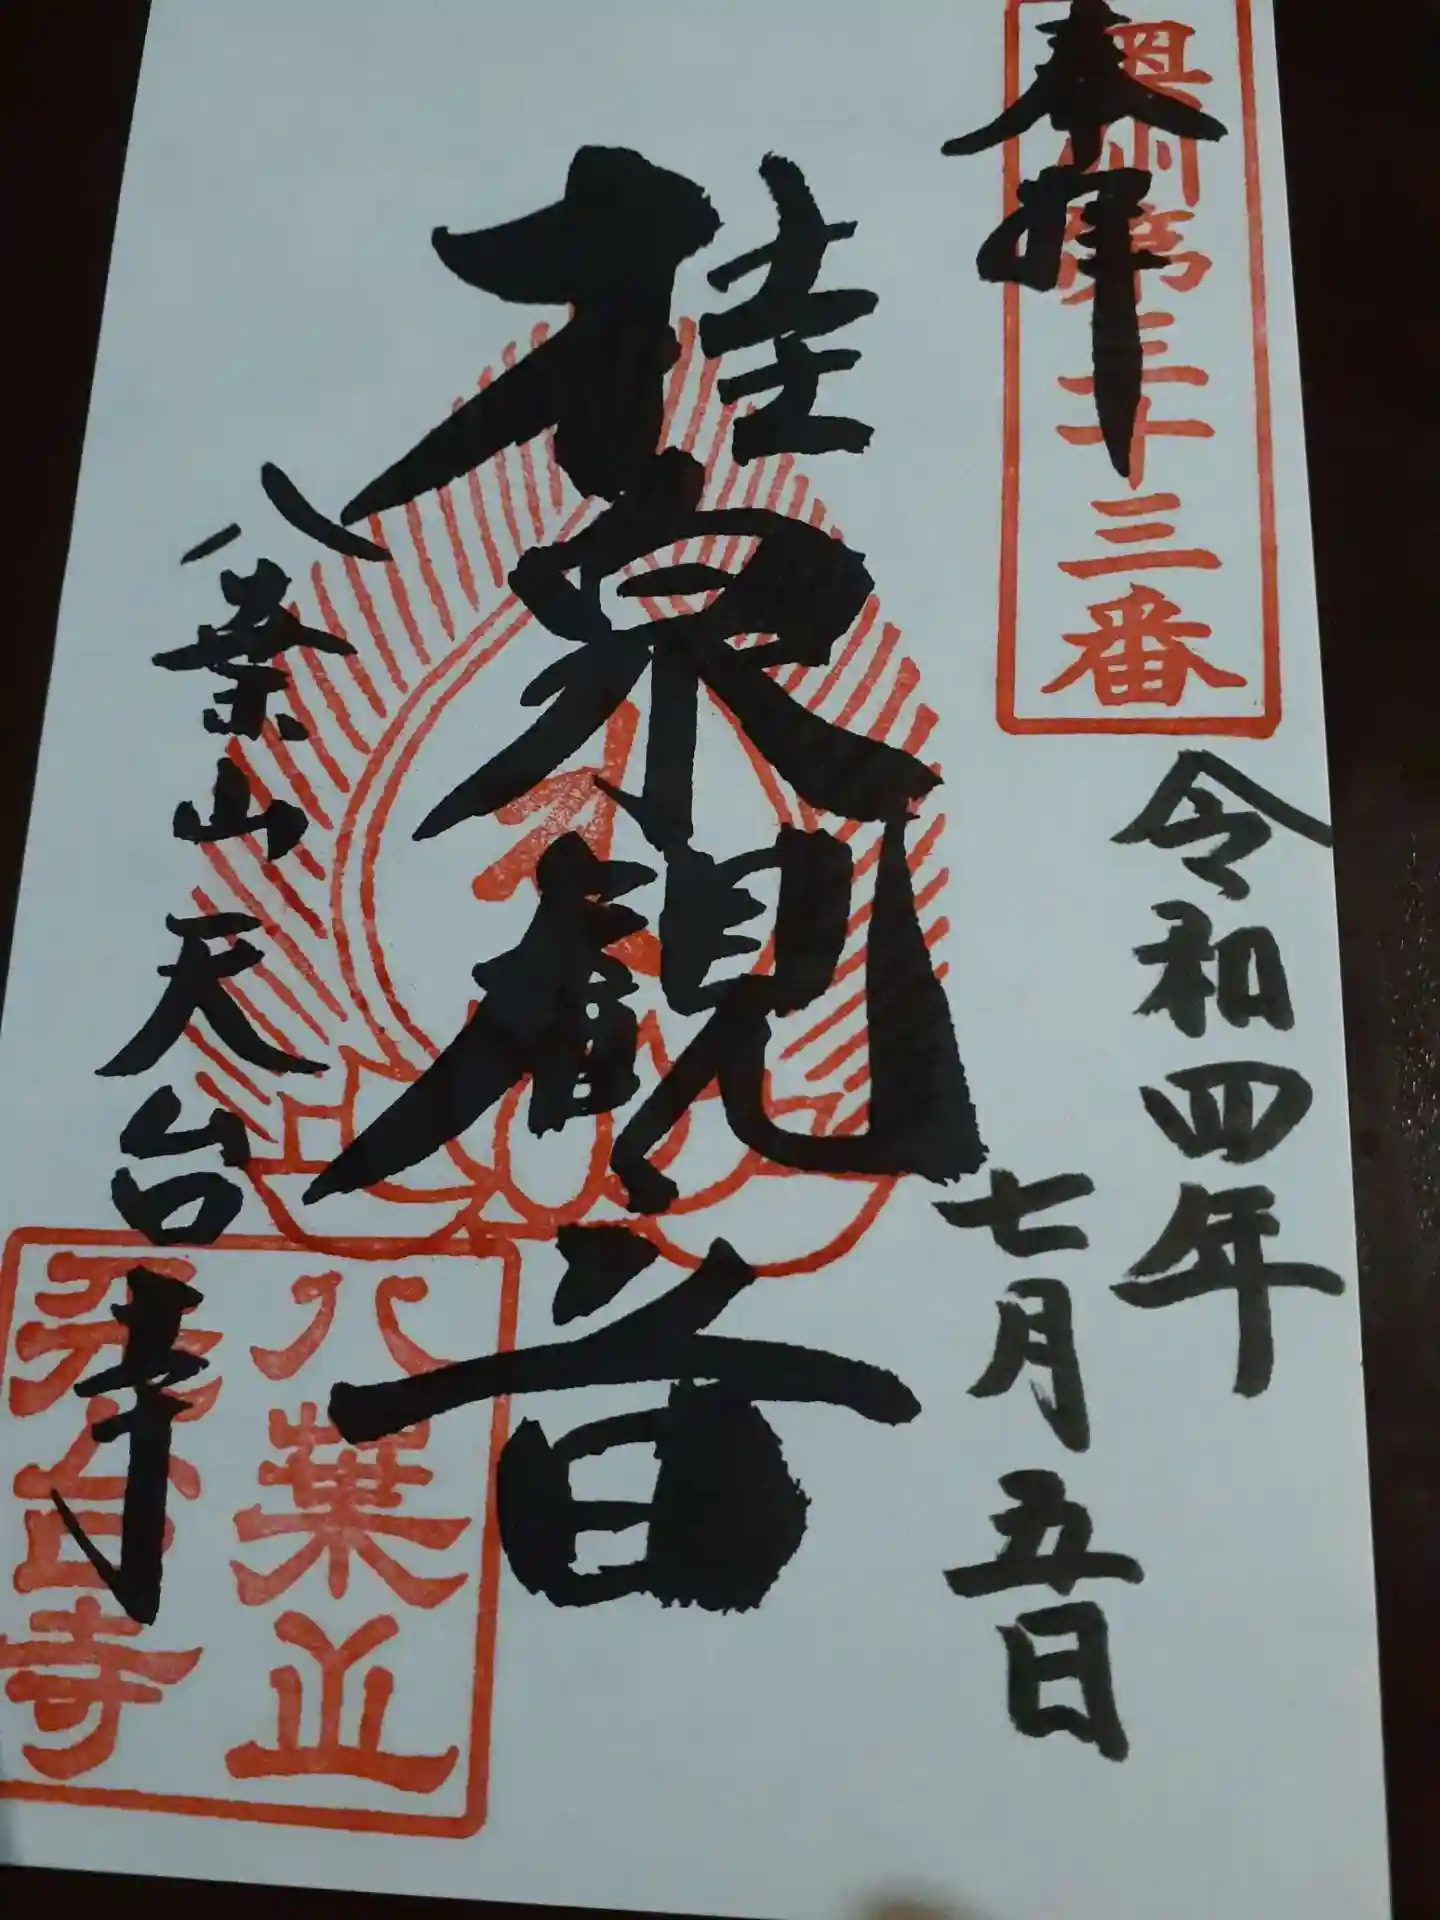 奉拝
奥州第三十三番
令和四年
七月五日
桂泉観音
八葉山天台寺
八葉山
天台寺